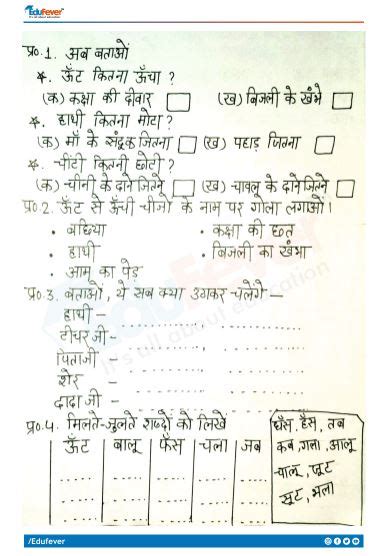 Edufever
It's all about education
प्र०.1. अब बताओं
*. ऊँट कितना ऊँचा ?
(क) कक्षा की दीवार (ख) बिजली के खंभे
*. हाथी कितना मोटा ?
(क) माँ के संदूक जितना (ख) पहाड़ जितना
*. चींटी कितनी छोटी ?
(क) चीनी के दाने जितने (ख) चावल के दाने जितने
प्र०.2. ऊँट से ऊँची चीजों के नाम पर गोला लगाओं।
• बछिया • कक्षा की छत
• हाथी • बिजली का खंभा
• आम का पेड़
प्र०.3. बताओं, ये सब क्या उठाकर चलेंगे –
हाथी –
टीचर जी –
पिताजी –
शेर –
दादा जी –
प्र०.4. मिलते-जुलते शब्दों को लिखें
ऊँट बालू फँस चला जब
धँस, हँस, तब
कब, गला, आलू
चालू, घूट
सूट, भला
/Edufever